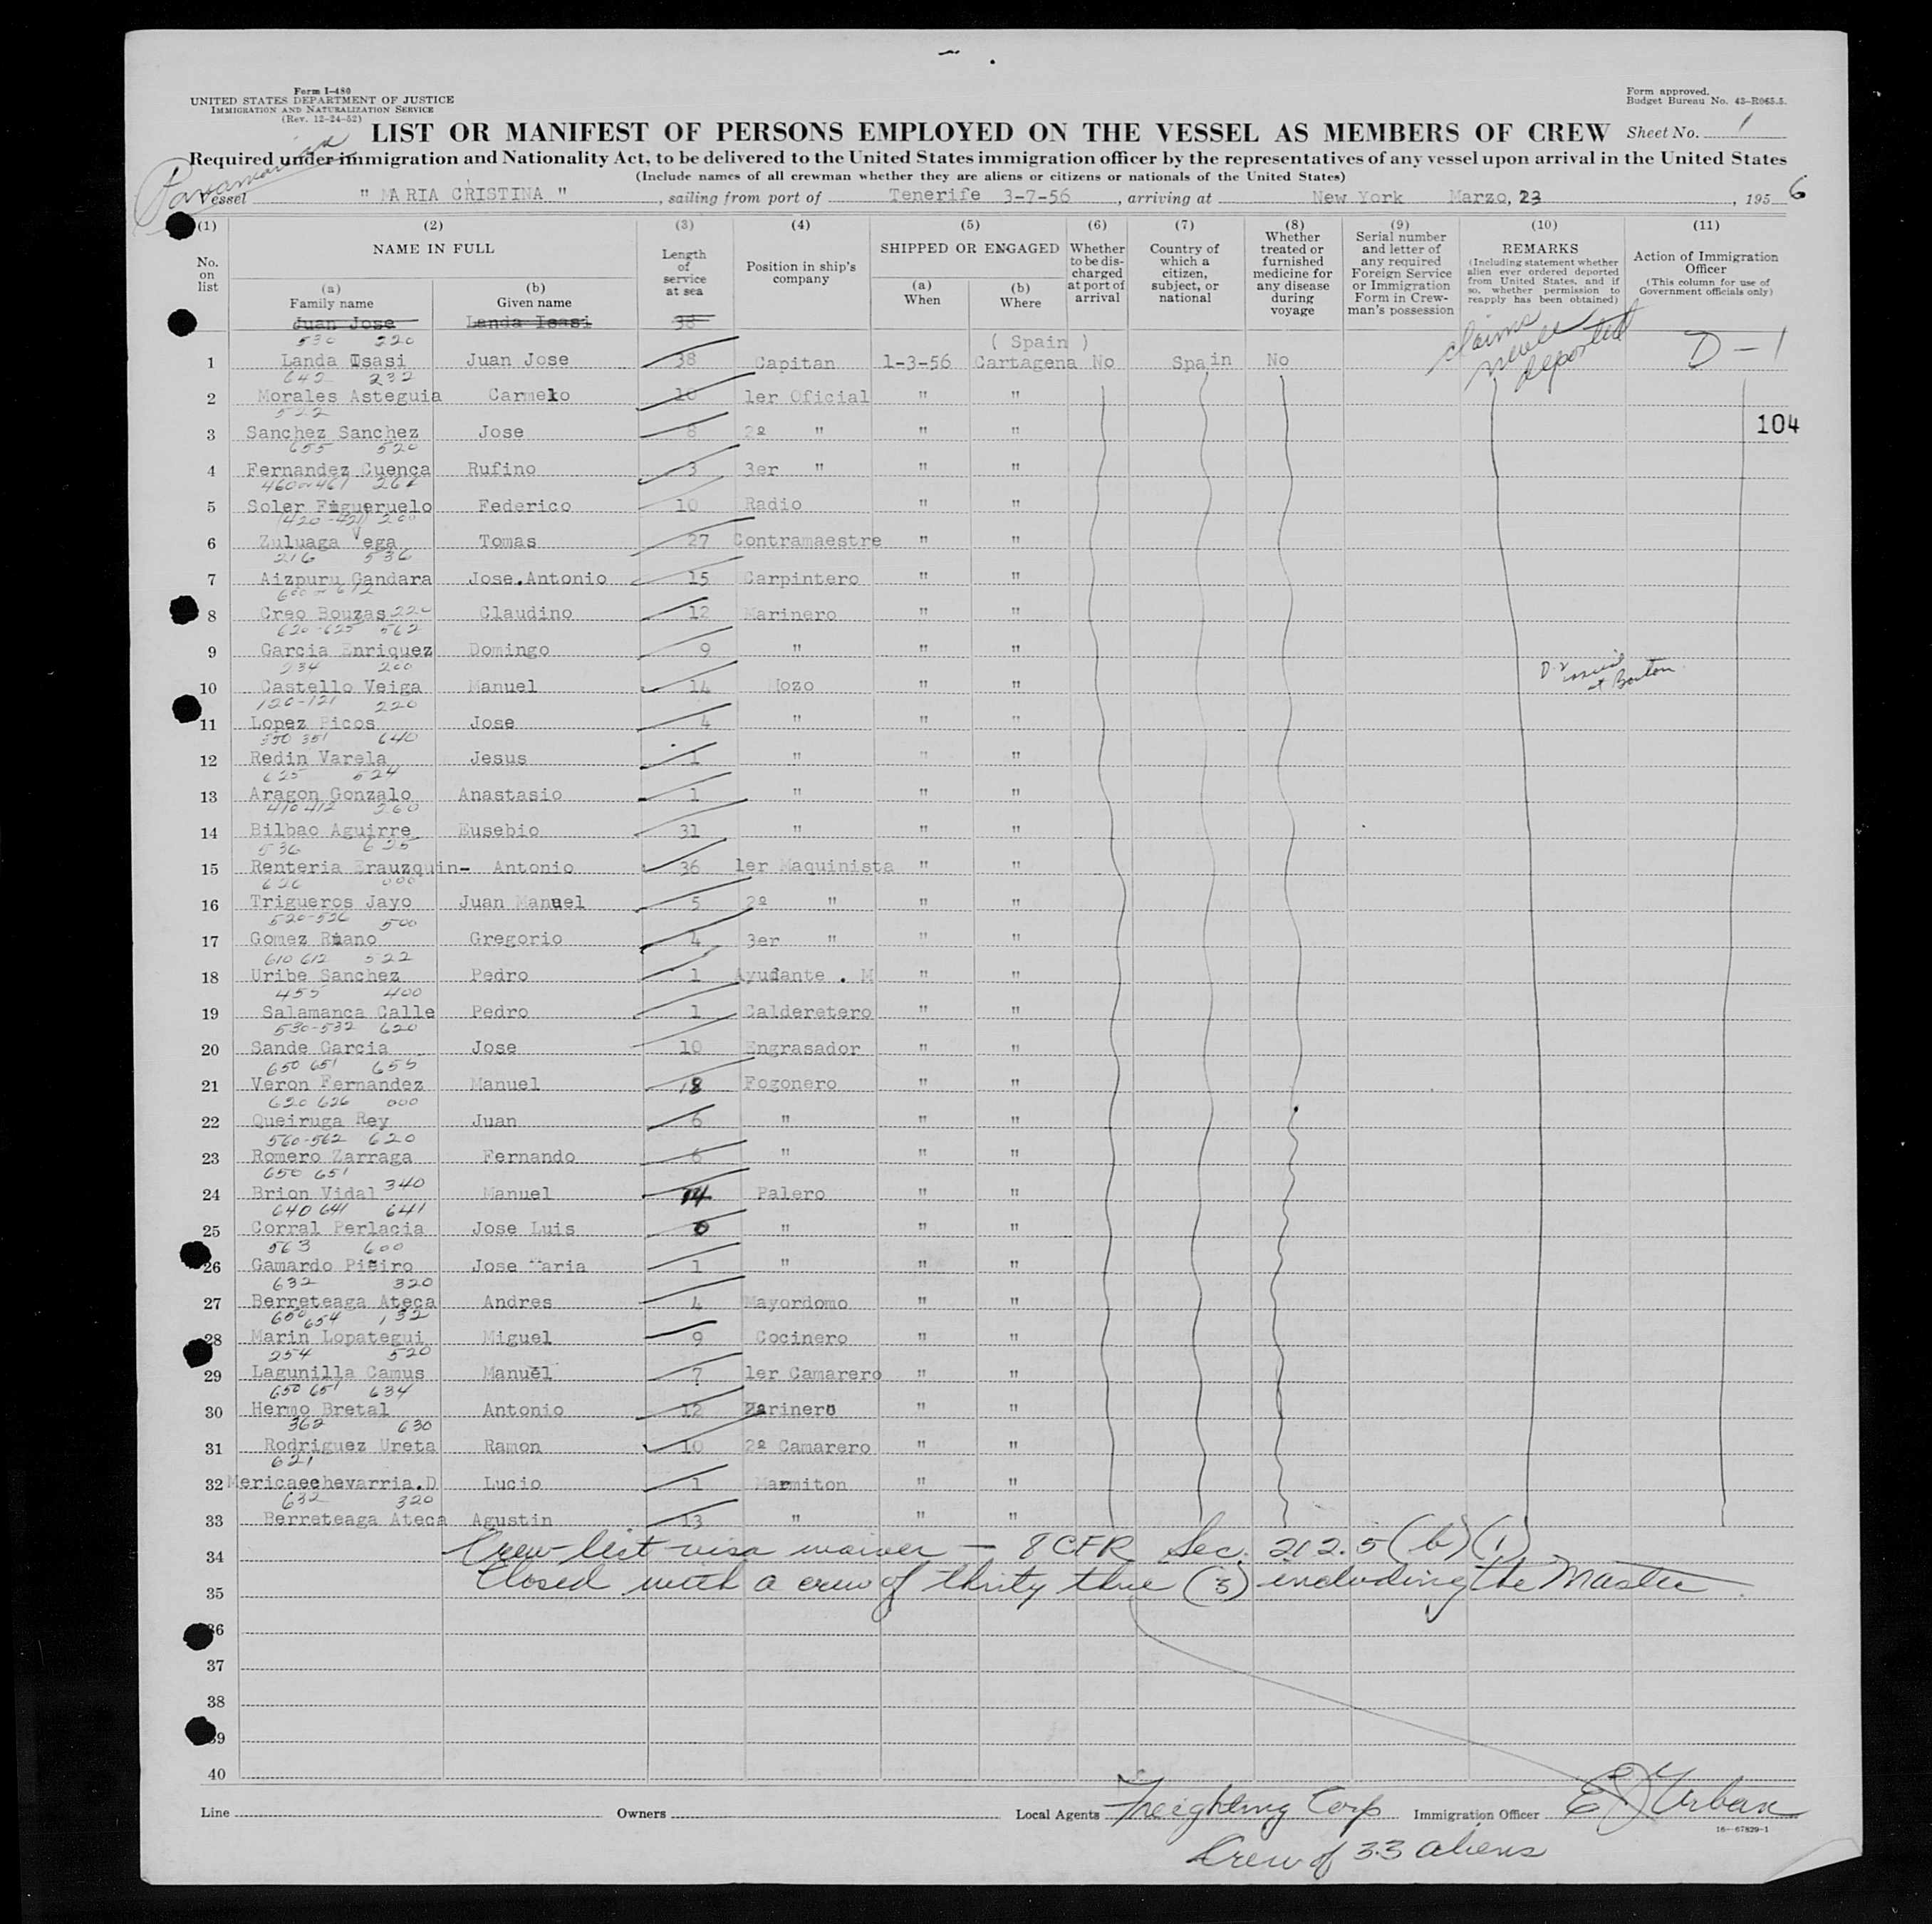 Form I-480
UNITED STATES DEPARTMENT OF JUSTICE
IMMIGRATION AND NATURALIZATION SERVICE
(Rev. 12-24-52)
Form approved.
Budget Bureau No. 43-R065.5.
LIST OR MANIFEST OF PERSONS EMPLOYED ON THE VESSEL AS MEMBERS OF CREW Sheet No. 1
Required under immigration and Nationality Act, to be delivered to the United States immigration officer by the representatives of any vessel upon arrival in the United States
(Include names of all crewman whether they are aliens or citizens or nationals of the United States)
Panamanian
Vessel " MARIA CRISTINA " , sailing from port of Tenerife 3-7-56 , arriving at New York Marzo, 23 , 1956
(1) (2) (3) (4) (5) (6) (7) (8) (9) (10) (11)
No. on list
NAME IN FULL
(a) Family name
(b) Given name
Length of service at sea
Position in ship's company
SHIPPED OR ENGAGED
(a) When
(b) Where
Whether to be discharged at port of arrival
Country of which a citizen, subject, or national
Whether treated or furnished medicine for any disease during voyage
Serial number and letter of any required Foreign Service or Immigration Form in Crewman's possession
REMARKS
(Including statement whether alien ever ordered deported from United States, and if so, whether permission to reapply has been obtained)
Action of Immigration Officer
(This column for use of Government officials only)
Juan Jose Landa Isasi 38
530 220
( Spain )
1 Landa Isasi Juan Jose 38 Capitan 1-3-56 Cartagena No Spain No claims never deported D-1
642 232
2 Morales Asteguia Carmelo 10 1er Oficial " "
522
3 Sanchez Sanchez Jose 8 2º " " "
104
655 520
4 Fernandez Cuenca Rufino 3 3er " " "
460 or 461 262
5 Soler Figueruelo Federico 10 Radio " "
(420-421) 200
6 Zuluaga Vega Tomas 27 Contramaestre " "
216 536
7 Aizpuru Gandara Jose.Antonio 15 Carpintero " "
600 or 612
8 Creo Bouzas 220 Claudino 12 Marinero " "
620-625 562
9 Garcia Enriquez Domingo 9 " " "
234 200
10 Castello Veiga Manuel 14 Mozo " " D-2 issued at Boston
120-121 220
11 Lopez Picos Jose 4 " " "
350 351 640
12 Redin Varela Jesus 1 " " "
625 524
13 Aragon Gonzalo Anastasio 1 " " "
410 412 260
14 Bilbao Aguirre Eusebio 31 " " "
536 625
15 Renteria Erauzquin- Antonio 36 1er Maquinista " "
626 000
16 Trigueros Jayo Juan Manuel 5 2º " " "
520-526 500
17 Gomez Riano Gregorio 4 3er " " "
610 612 522
18 Uribe Sanchez Pedro 1 Ayudante . M " "
455 400
19 Salamanca Calle Pedro 1 Calderetero " "
530-532 620
20 Sande Garcia Jose 10 Engrasador " "
650 651 655
21 Veron Fernandez Manuel 18 Fogonero " "
620 626 000
22 Queiruga Rey Juan 6 " " "
560-562 620
23 Romero Zarraga Fernando 6 " " "
650 651
24 Brion Vidal 340 Manuel 14 Palero " "
640 641 641
25 Corral Perlacia Jose Luis 0 " " "
563 600
26 Gamardo Piñeiro Jose Maria 1 " " "
632 320
27 Berreteaga Ateca Andres 4 Mayordomo " "
650 654 132
28 Marin Lopategui Miguel 9 Cocinero " "
254 520
29 Lagunilla Camus Manuel 7 1er Camarero " "
650 651 634
30 Hermo Bretal Antonio 12 Marinero " "
362 630
31 Rodriguez Ureta Ramon 10 2º Camarero " "
621
32 Mericaechevarria.D Lucio 1 Marmiton " "
632 320
33 Berreteaga Ateca Agustin 13 " " "
34 Crew list visa waiver - 8 CFR Sec. 212.5 (b) (1)
35 Closed with a crew of thirty three (3) including the Master.
36
37
38
39
40
Line Owners Local Agents Freighting Corp Immigration Officer E J Urban
16-67829-1
Crew of 33 aliens